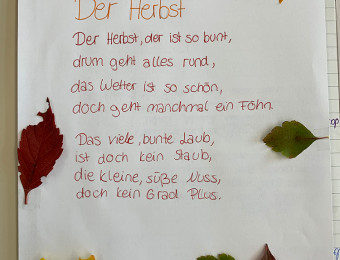 Der Herbst
Der Herbst, der ist so bunt,
drum geht alles rund,
das Wetter ist so schön,
doch geht manchmal ein Föhn.
Das viele, bunte Laub,
ist doch kein Staub,
die kleine, süße Nuss,
doch kein Grad Plus.